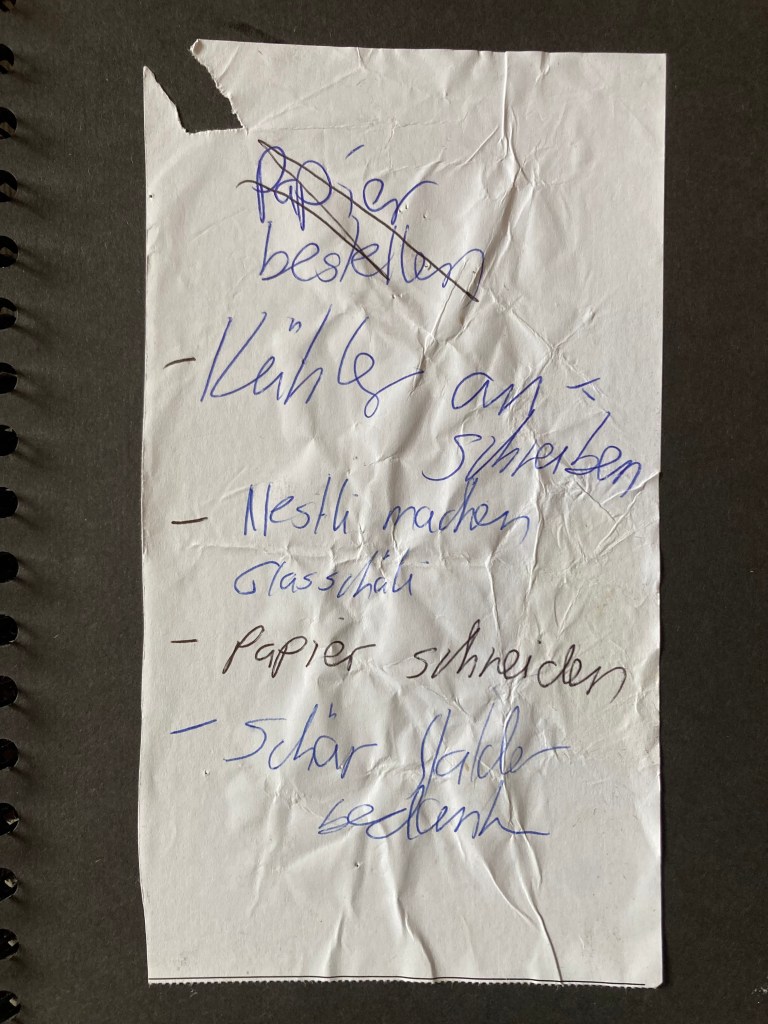 Papier
bestellen
- Kühler an-
schreiben
- Nestli machen
Glasschäli
- Papier schneiden
- Schär Stalder
bedank